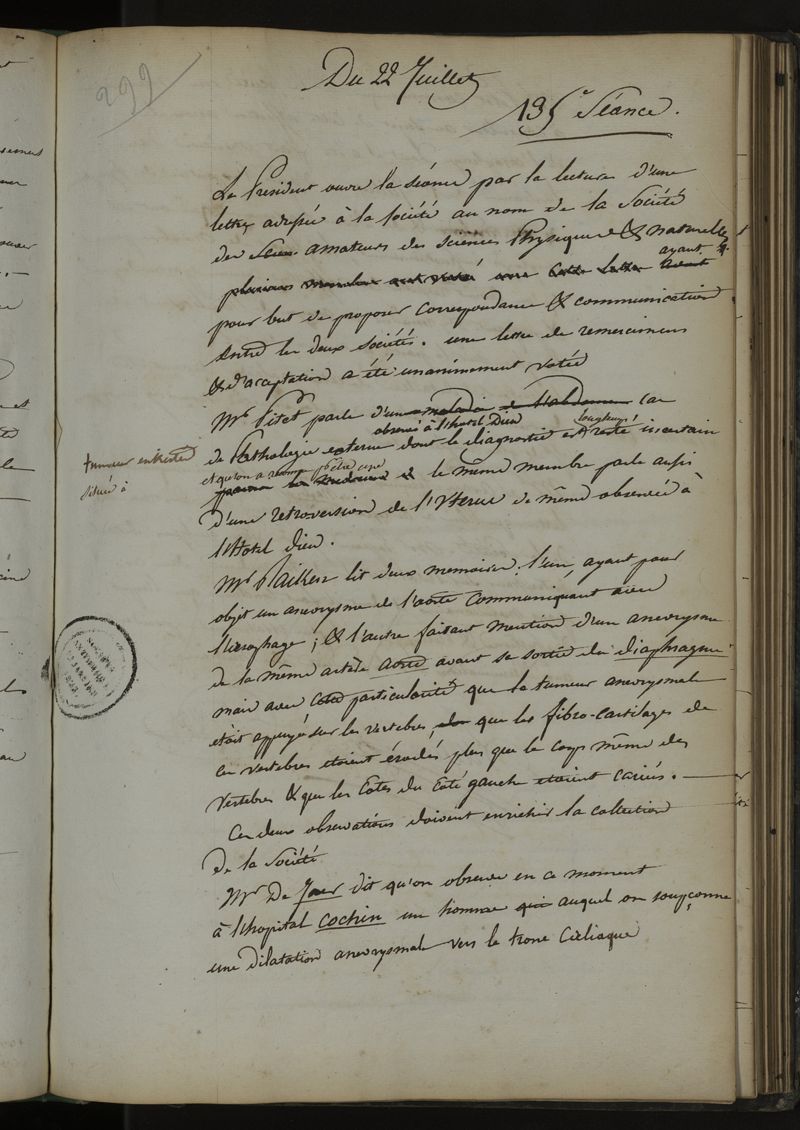 299
Du 22 Juillet
135e Séance.
Le President ouvre la séance par la lecture d'une
lettre adressée à la Société au nom de la Société
des amateurs des sciences Physiques & naturelles
plusieurs membres cette lettre ayant
pour but de proposer correspondance & communication
entre les deux sociétés. une lettre de remercimens
& d'acceptation a été unanimement votée
Mr Pitet parle d'un maladie de l'abdomen cas
observé à l'hotel Dieu longtems
de Pathologie externe dont le diagnostic est resté incertain
tumeur enkistée
située à
et qu'on a
le même membre parle aussi
d'une retroversion de l'Uterus de même observée à
l'Hotel Dieu.
Mr Raikem lit deux memoires, l'un, ayant pour
objet un anevrysme de l'aorte communiquant avec
l'œsophage; & l'autre faisant mention d'un anevrysme
de la même artère aorte avant sa sortie du diaphragme
mais avec cette particularité que la tumeur anevrysmale
étoit appuyée sur les vertebres, que les fibro-cartilages de
ces vertebres etoient érodés plus que le corps même des
vertebres & que les Cotes du Coté gauche etoient cariées. —
Ces deux observations doivent enrichir la collection
de la Société
Mr De Jaer dit qu'on observe en ce moment
à l'hopital Cochin un homme qui auquel on soupçonne
une dilatation anevrysmale vers le tronc Cœliaque